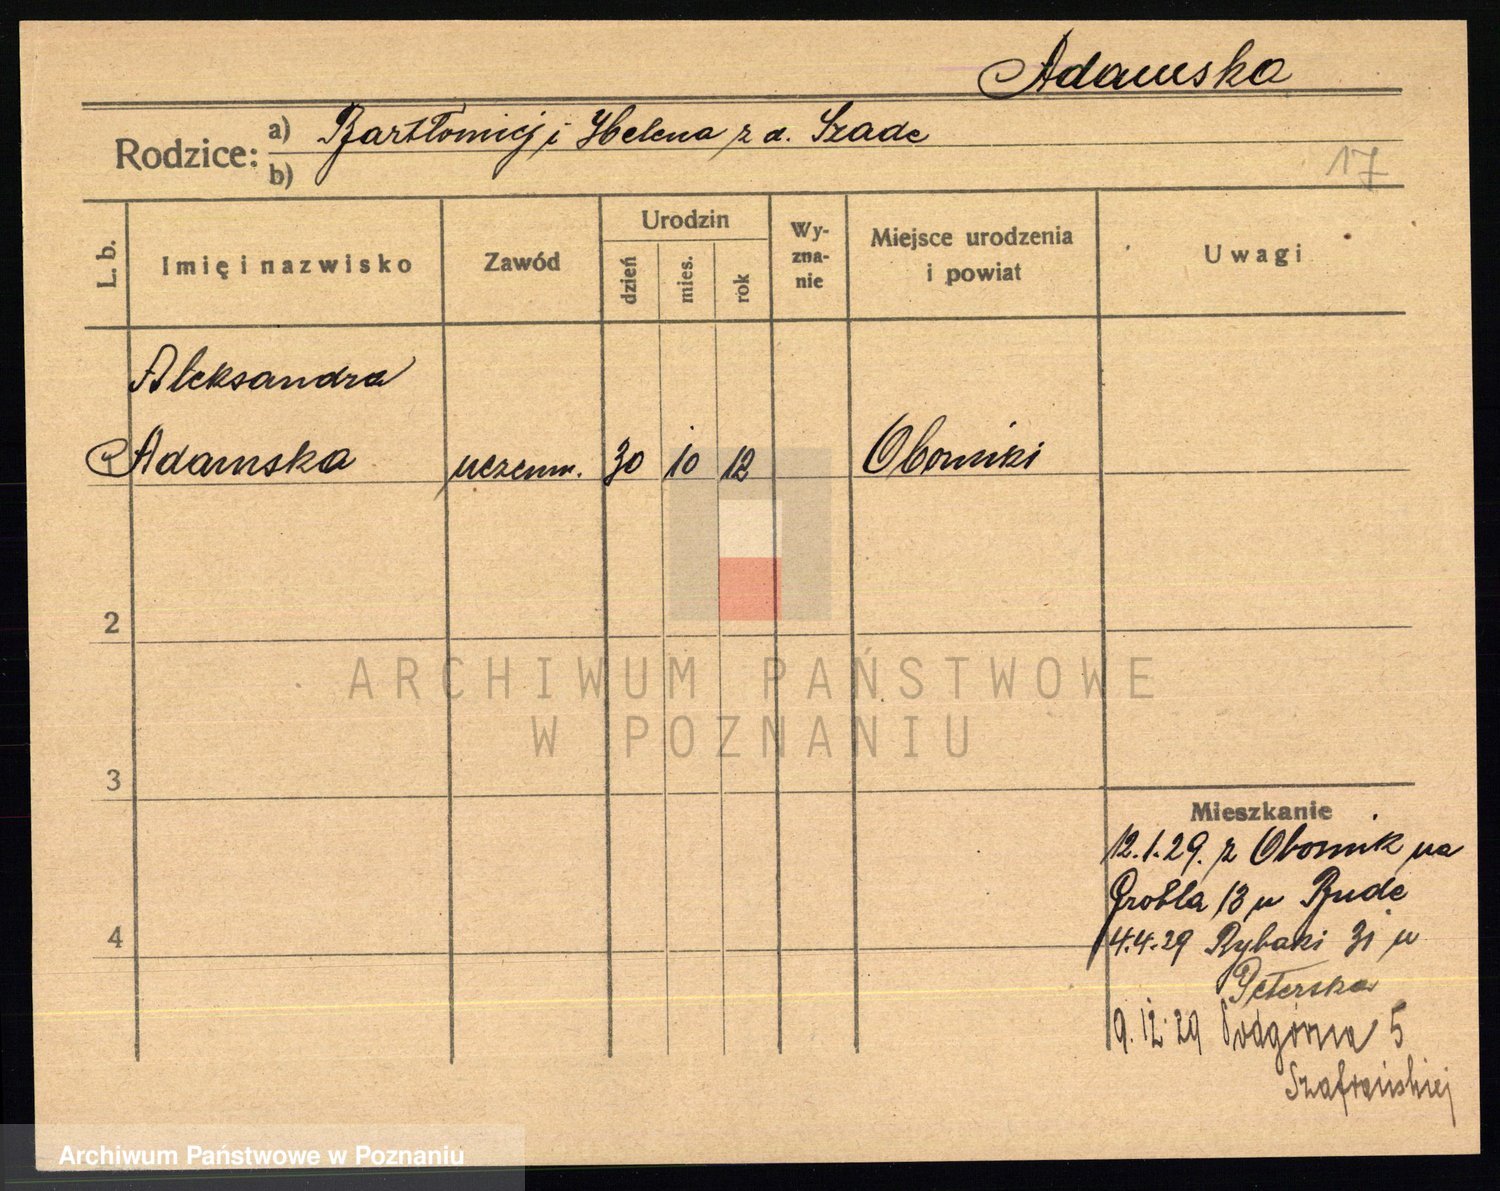 Adamska
Rodzice:
a) Bartłomiej i Helena z d. Szade
b)
17
L. b.
Imię i nazwisko
Zawód
Urodzin
dzień
mies.
rok
Wy-
zna-
nie
Miejsce urodzenia
i powiat
Uwagi
Aleksandra
Adamska uczenn. 30 10 12 Oborniki
2
ARCHIWUM PAŃSTWOWE
W POZNANIU
3
Mieszkanie
12.1.29. z Obornik na
Grobla 13 u Bude
4
4.4.29 Rybaki 31 u
Peterska
9.12.29 Podgórna 5
Szafrańskiej
Archiwum Państwowe w Poznaniu